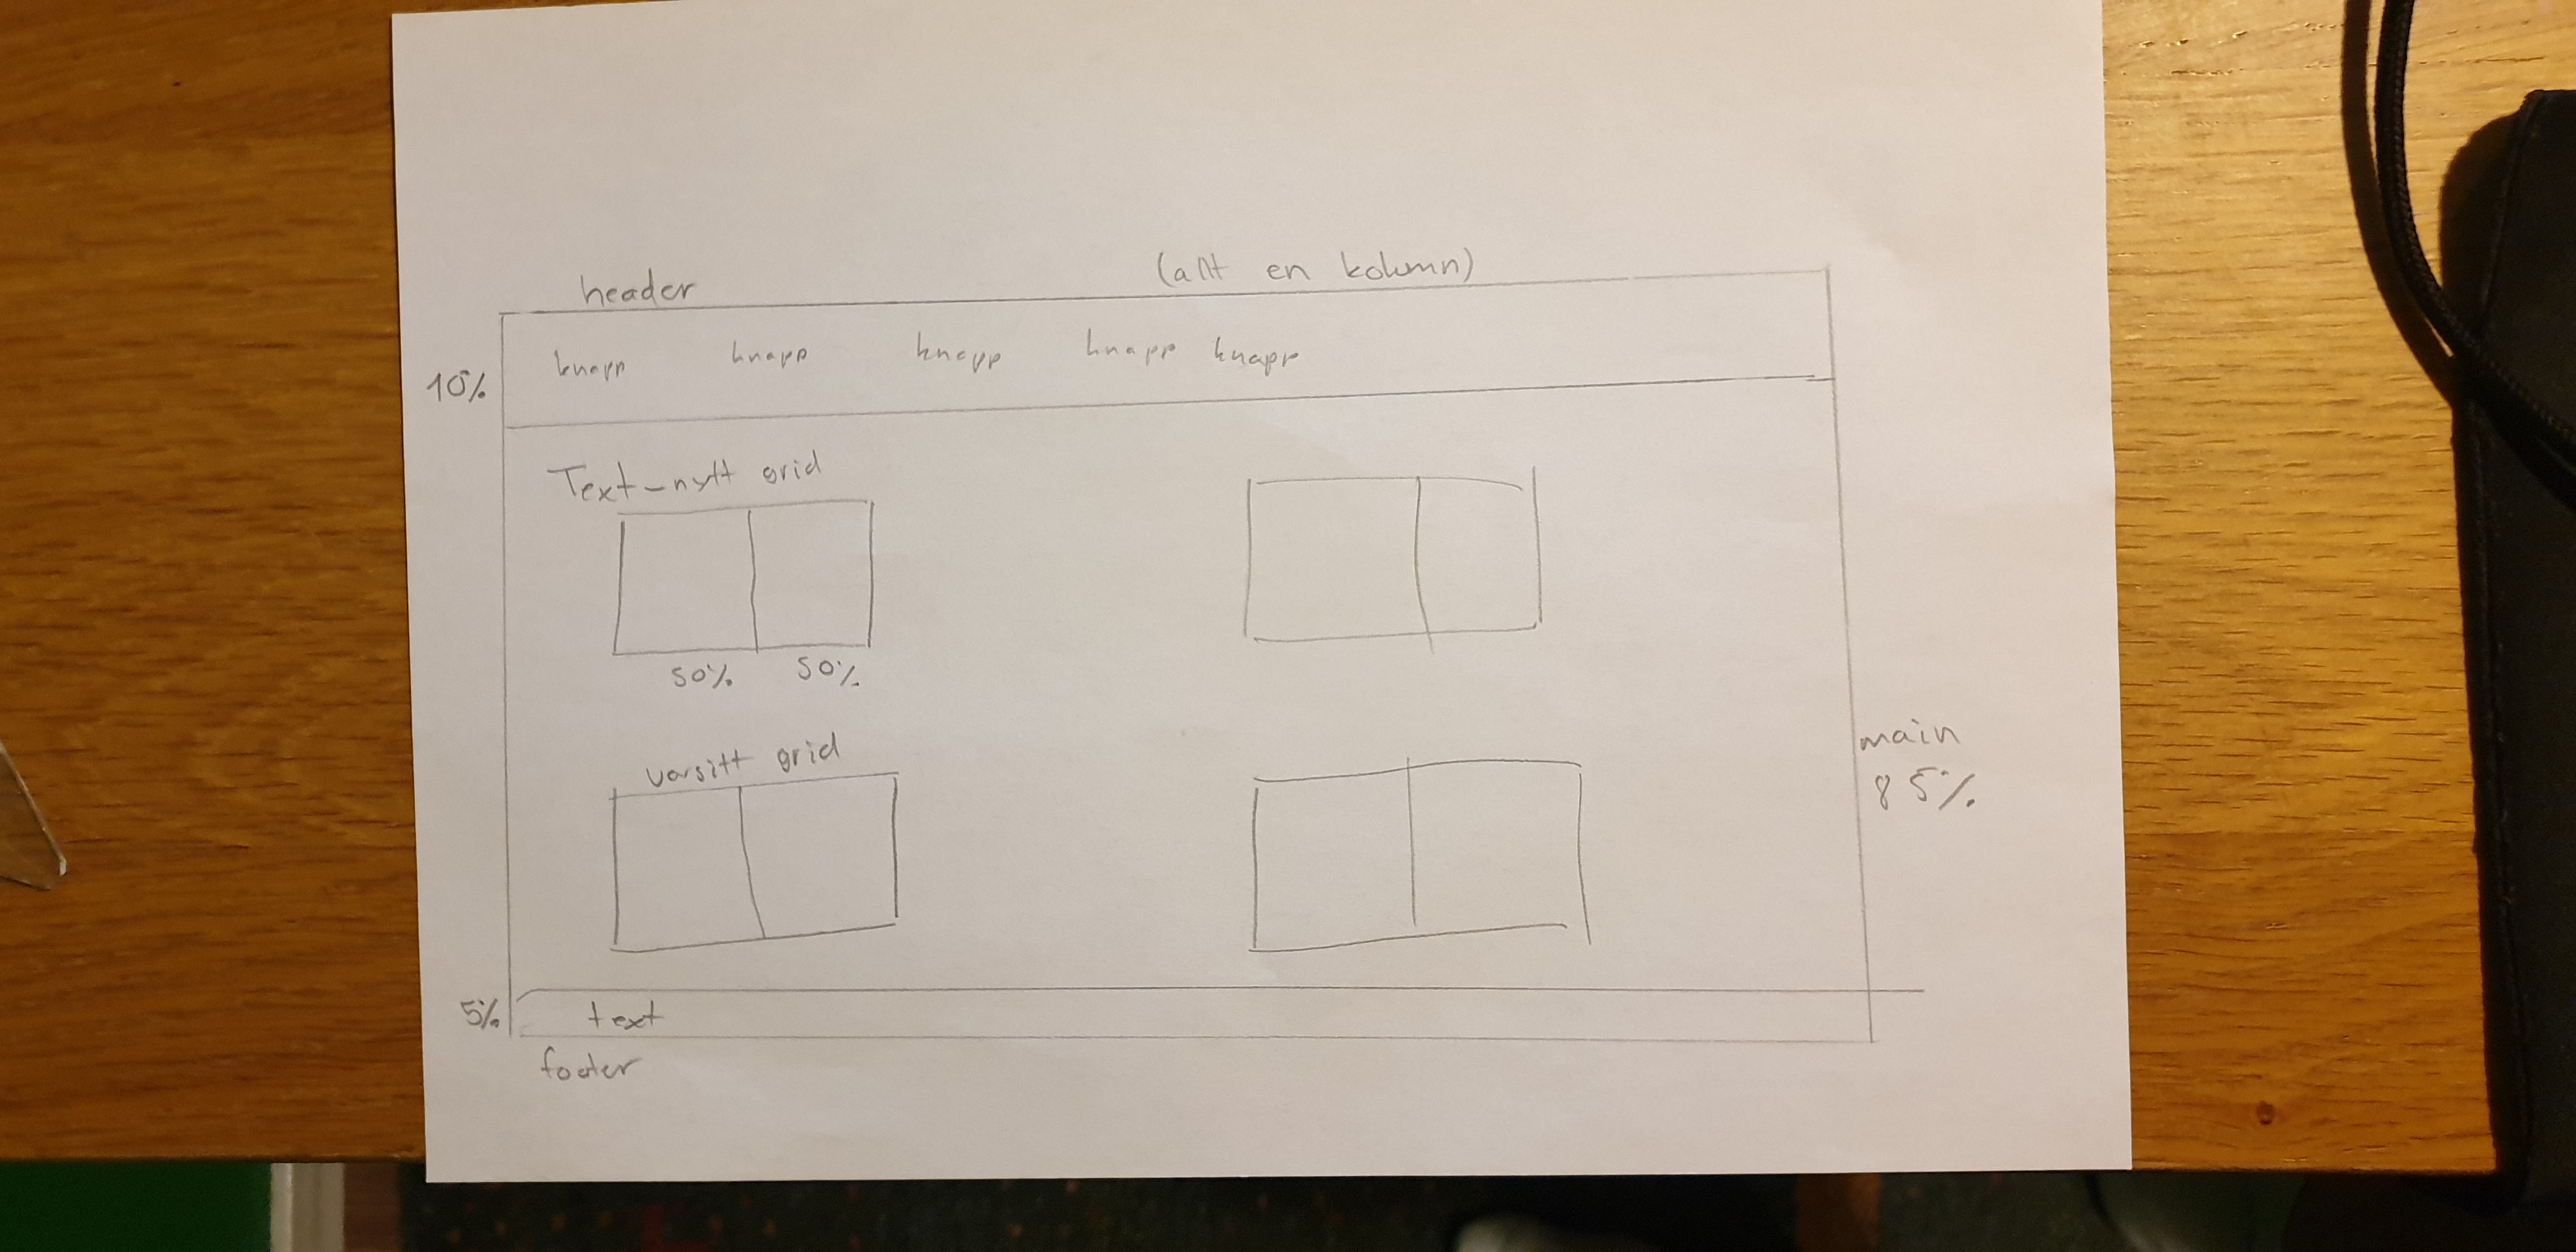 header
(allt en kolumn)
knapp knapp knapp knapp knapp
10%
Text-nytt grid
50% 50%
varsitt grid
main
85%
5%
text
footer